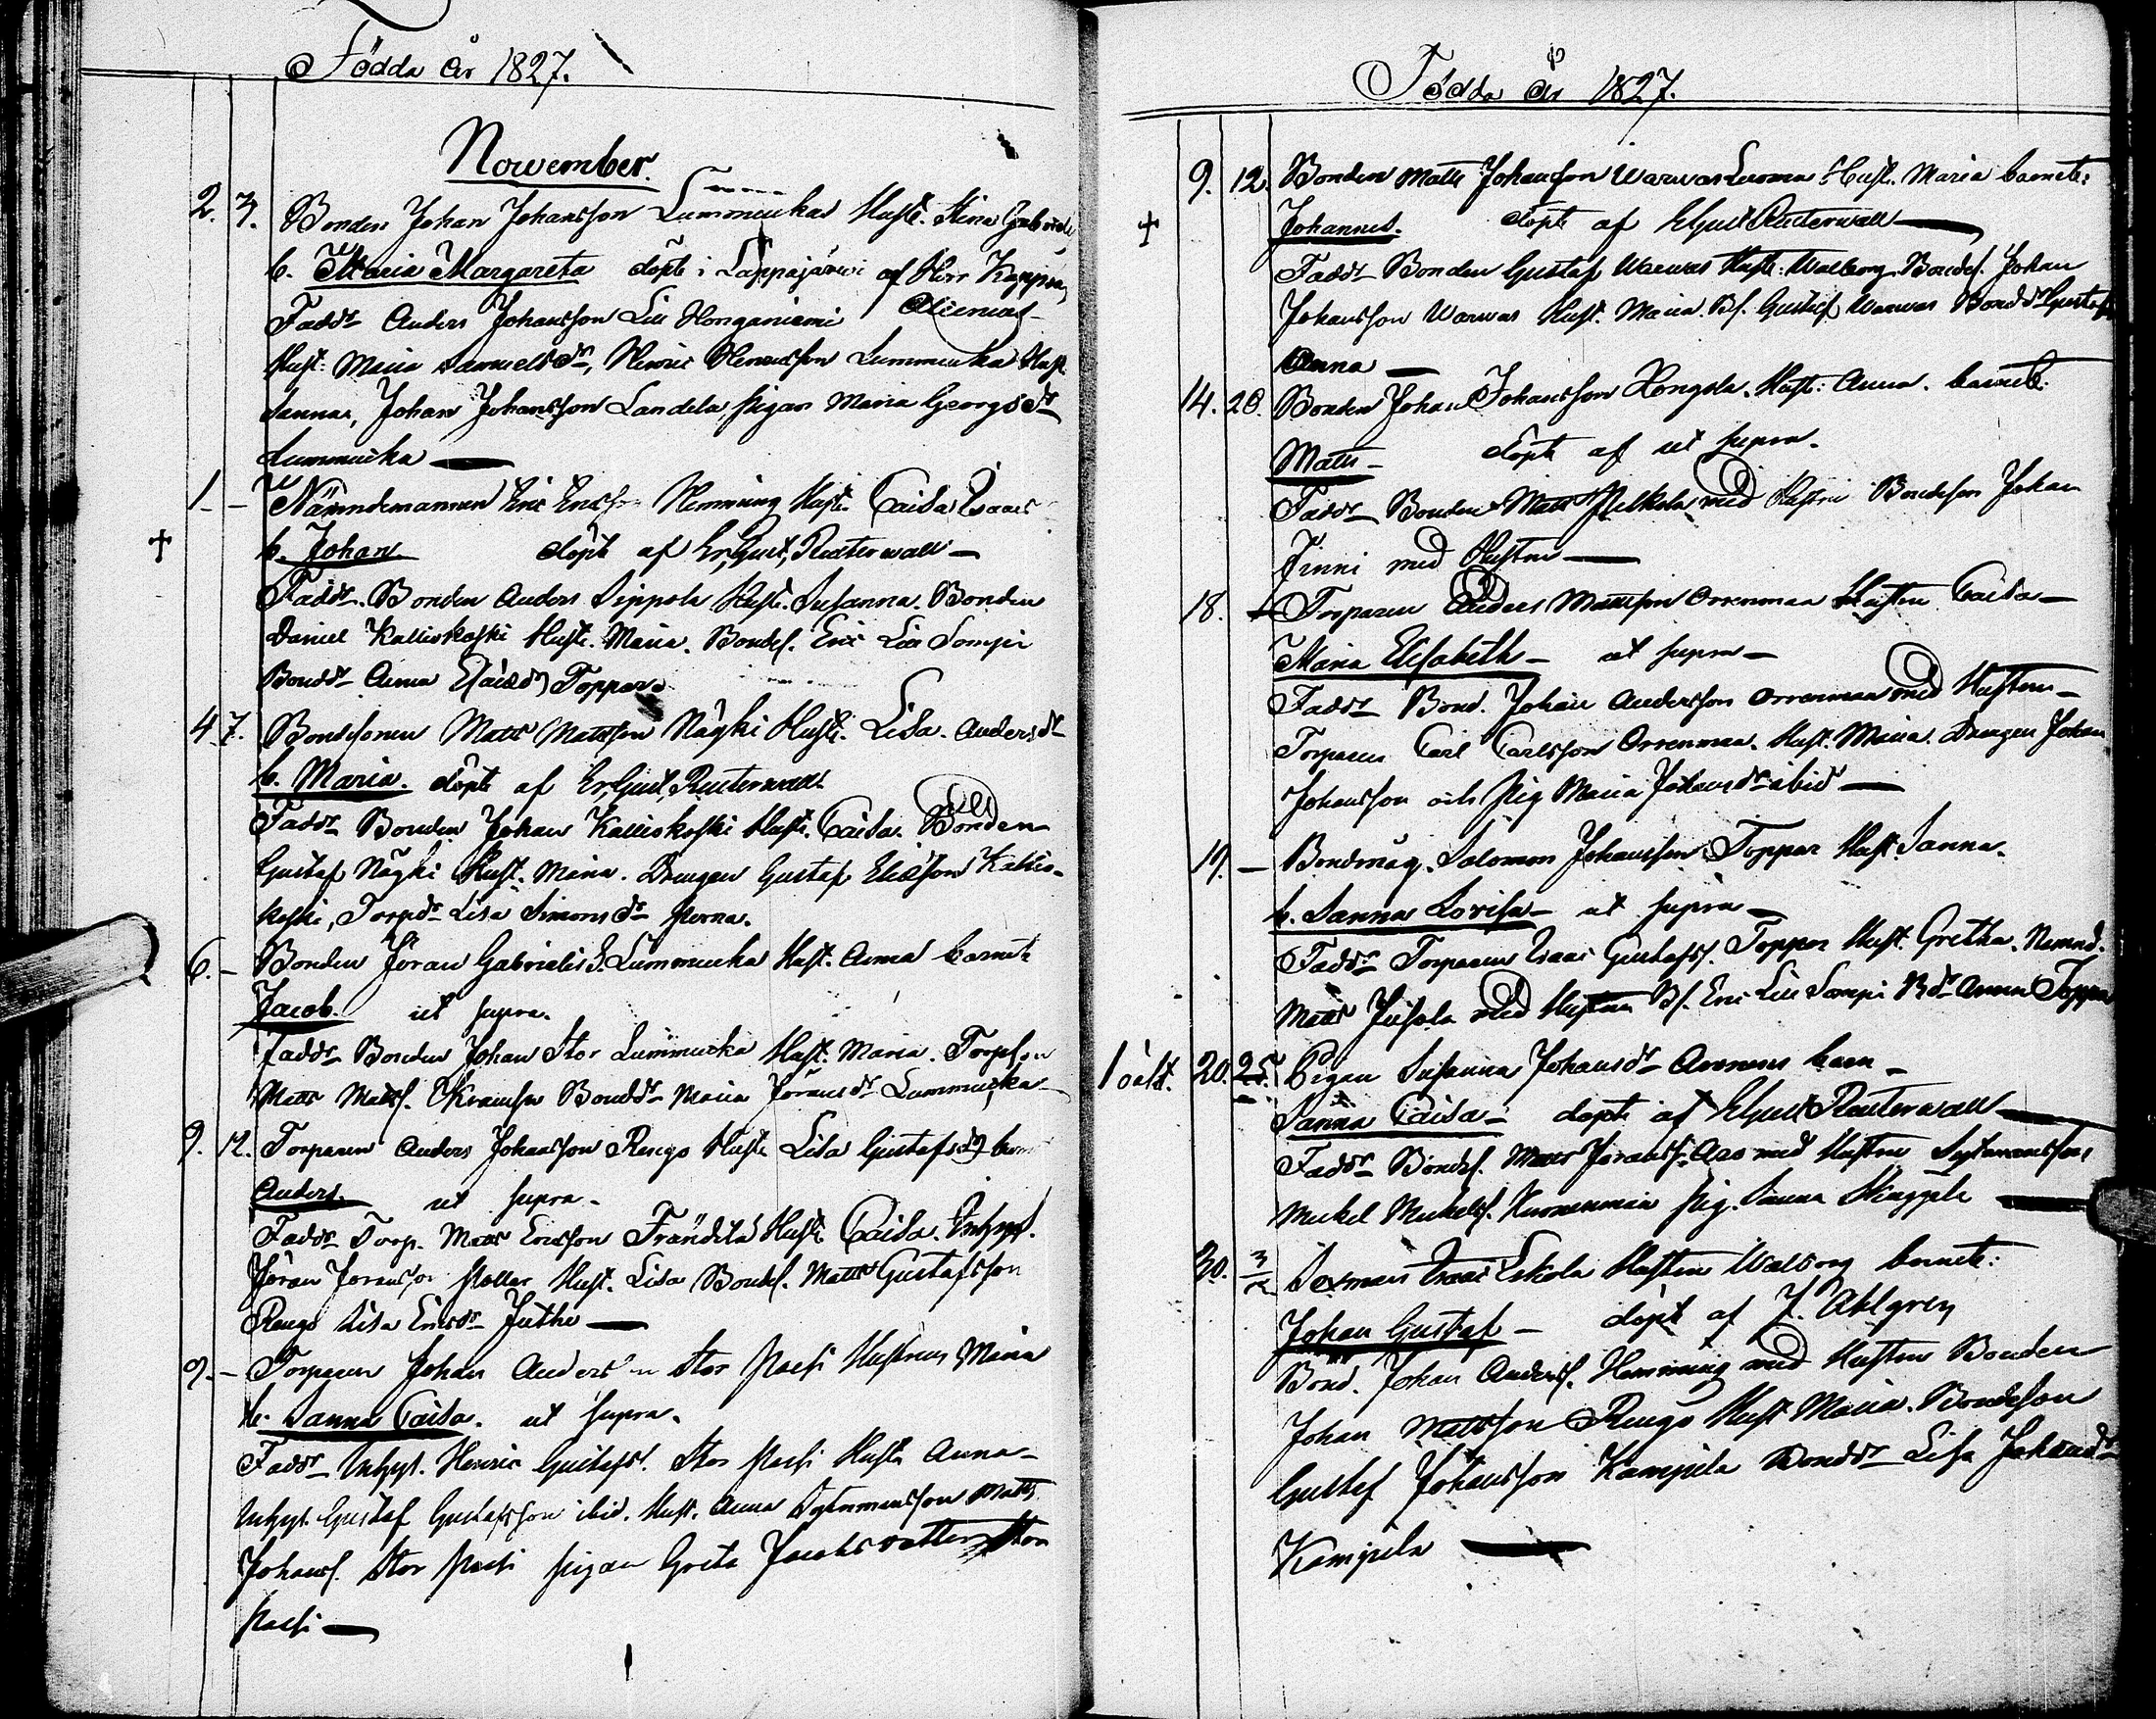 Födda år 1827.
November.
2. 3. Bonden Johan Johansson Lummukas Hust. Stina Gabriels
b. Maria Margareta döpt i Lappajärwi af Herr Kappl.
Faddr Anders Johansson Lill Honganiemi Alcenius
Hust. Maria Samuelsdr, Henric Henricsson Lummuka Hust.
Sanna, Johan Johansson Landela pigan Maria Georgsdr
Lummucka
1. - Nämndemannen Eric Ericss Hemming Hust. Caisa Isaacs
b. Johan döpt af Gust. Reuterwall
Faddr. Bonden Anders Sippola Hust. Susanna. Bonden
Daniel Kallioskoski Hust. Maria. Bondes. Eric Lill Sompi
Bonddr Anna Toppar
4. 7. Bondesonen Matts Mattsson Näghi Hust. Lisa Andersdr
b. Maria. döpt af Gust. Reuterwall
Faddr Bonden Johan Kallioskoski Hust. Caisa. Bonden
Gustaf Näghi Hust. Maria. Drengen Gustaf Eliasson Kallio-
koski, Torpdr Lisa Simonsdr
6. - Bonden Jöran Gabriels S. Lummucka Hust. Anna barnet
Jacob. ut supra.
Faddr Bonden Johan Stor Lummucka Hust. Maria. Torpson
Matts Matts. Bonddr Maria Jöransdr Lummucka
9. 12. Torparen Anders Johansson Rengo Hust. Lisa Gustafsdr barnet
Anders. ut supra.
Faddr Torp. Matts Ericsson Frändilä Hust. Caisa. Inhys.
Jöran Joransson Hust. Lisa Bondes. Matts Gustafsson
Rengo Lisa Ericsdr Juthe
9. - Torparen Johan Anders Stor Pasi Hustrus Maria
b. Sanna Caisa. ut supra.
Faddr Inhys. Henric Gustafs. Stor Pasi Hust. Anna
Inhys. Gustaf Gustafsson ibid. Hust. Anna Sytemansson Matts
Johans. Stor Pasi pigan Greta Jacobsdotter Stor
Pasi
Födda år 1827.
9. 12. Bonden Matts Johansson Warwas Luoma Hust. Maria barnet:
Johannes. döpt af Gust Reuterwall
Faddr Bonden Gustaf Warwas Hust. Walborg. Bondes. Johan
Johansson Warwas Hust. Maria. Bs. Gustaf Warwas Bonddr Gustafs
Anna
14. 20. Bonden Johan Johansson Hongola. Hust: Anna. barnet:
Matts döpt af ut supra.
Faddr Bonden Matts Pelkola med Hustru Bondeson Johan
Finni med Hustru
18. - Torparen Anders Mattsson Orrenmaa Hustru Caisa
Maria Elisabeth - ut supra
Faddr Bond. Johan Andersson Orrenmaa med Hustru
Torparen Carl Carlsson Orrenmaa. Hust. Maria. Drengen Johan
Johansson och pig Maria Johansdr ibid
19. - Bondmåg. Salomon Johansson Toppar Hust. Sanna.
b. Sanna Lovisa - ut supra
Faddr Torparen Isaac Gustafss. Toppar Hust. Gretha. Nemnd.
Matts Jusola med Hustru Bs. Eric Lill Sompi Bdr Anna Toppar
1 oäkt. 20. 25. Pigan Susanna Johansdr barn
Sanna Caisa - döpt af Gust Reuterwall
Faddr Bondes. Matts Jöranss. med Hustru Sytemansson
Mickel Mickels. Kuorenmaa pig. Sanna
30. 3/12 Sexman Isaac Eskola Hustru Walborg barnet:
Johan Gustaf - döpt af J. Ahlgren
Bond. Johan Anderss. Hemming med Hustru Bonden
Johan Mattsson Rengo Hust Maria. Bondeson
Gustaf Johansson Kampila Bonddr Lisa Johansdr
Kampila